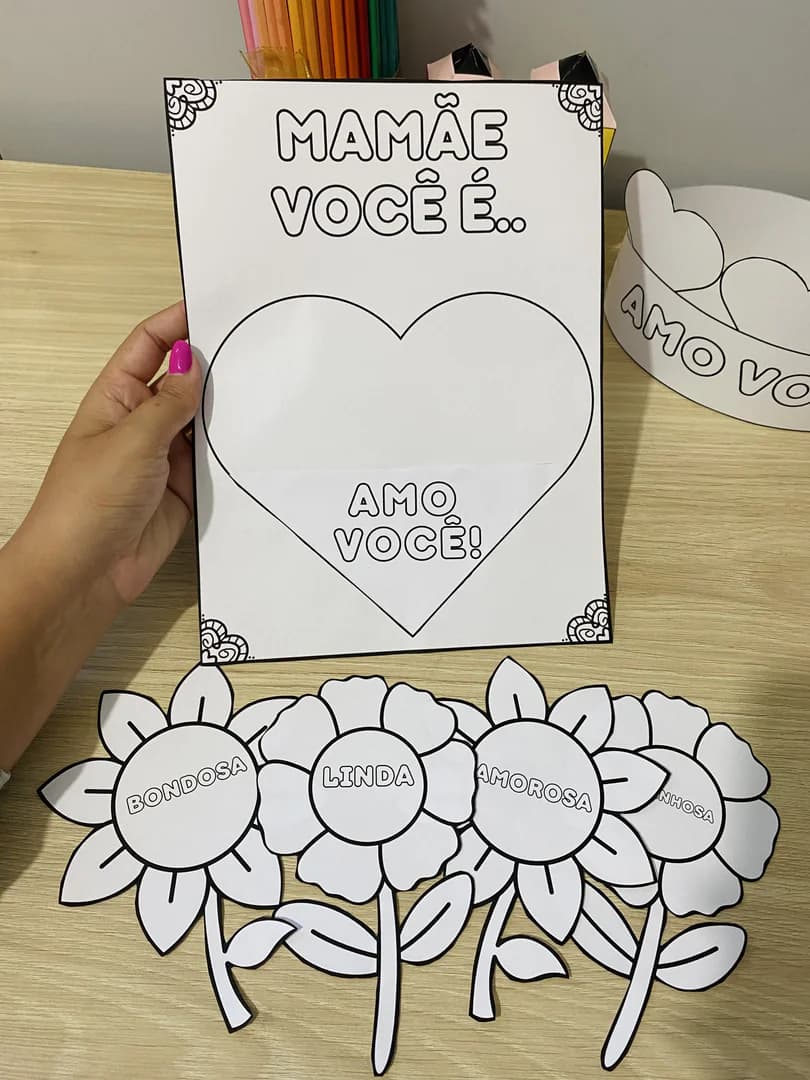 MAMÃE
VOCÊ É..
AMO VO
AMO
VOCÊ!
BONDOSA
LINDA
AMOROSA
NHOSA